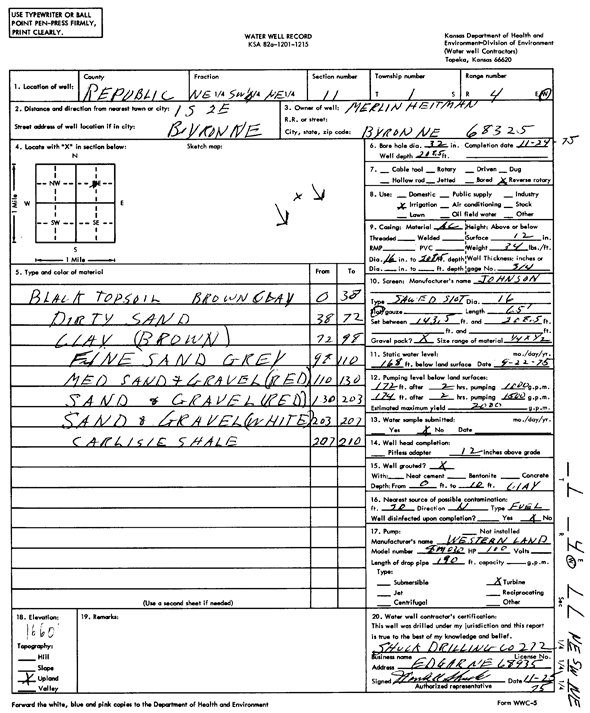 USE TYPEWRITER OR BALL
POINT PEN-PRESS FIRMLY,
PRINT CLEARLY.
WATER WELL RECORD
KSA 82a-1201-1215
Kansas Department of Health and
Environment-Division of Environment
(Water well Contractors)
Topeka, Kansas 66620
1. Location of well: County REPUBLIC Fraction NE 1/4 SW 1/4 NE 1/4 Section number 11 Township number T 1 S Range number R 4 E/W
2. Distance and direction from nearest town or city: 1 S 2 E
Street address of well location if in city: BYRON NE
3. Owner of well: MERLIN HEITMAN
R.R. or street:
City, state, zip code: BYRON NE 68325
4. Locate with "X" in section below: Sketch map:
N
NW NE
W E
SW SE
S
1 Mile
1 Mile
5. Type and color of material From To
BLACK TOPSOIL BROWN CLAY 0 38
DIRTY SAND 38 72
CLAY (BROWN) 72 98
FINE SAND GREY 98 110
MED SAND & GRAVEL (RED) 110 130
SAND & GRAVEL (RED) 130 203
SAND & GRAVEL (WHITE) 203 207
CARLISIE SHALE 207 210
(Use a second sheet if needed)
6. Bore hole dia. 32 in. Completion date 11-24-75
Well depth 208.5 ft.
7. Cable tool Rotary Driven Dug
Hollow rod Jetted Bored X Reverse rotary
8. Use: Domestic Public supply Industry
X Irrigation Air conditioning Stock
Lawn Oil field water Other
9. Casing: Material AC Height: Above or below
Threaded Welded Surface 12 in.
RMP PVC Weight 34 lbs./ft.
Dia. 16 in. to 208.5 ft. depth Wall Thickness: inches or
Dia. in. to ft. depth gage No. 3/4
10. Screen: Manufacturer's name JOHNSON
Type SAWED SLOT Dia. 16
Slot/gauze Length 65'
Set between 143.5 ft. and 208.5 ft.
ft. and ft.
Gravel pack? X Size range of material
11. Static water level: mo./day/yr.
168 ft. below land surface Date 9-22-75
12. Pumping level below land surfaces:
172 ft. after 2 hrs. pumping 1000 g.p.m.
174 ft. after 2 hrs. pumping 1500 g.p.m.
Estimated maximum yield 2000 g.p.m.
13. Water sample submitted: mo./day/yr.
Yes X No Date
14. Well head completion:
Pitless adapter 12 Inches above grade
15. Well grouted? X
With: Neat cement Bentonite Concrete
Depth: From 0 ft. to 10 ft. CLAY
16. Nearest source of possible contamination:
ft. 30 Direction N Type FUEL
Well disinfected upon completion? Yes X No
17. Pump: Not installed
Manufacturer's name WESTERN LAND
Model number HP 100 Volts
Length of drop pipe 190 ft. capacity g.p.m.
Type:
Submersible X Turbine
Jet Reciprocating
Centrifugal Other
18. Elevation:
1660'
Topography:
Hill
Slope
X Upland
Valley
19. Remarks:
20. Water well contractor's certification:
This well was drilled under my jurisdiction and this report
is true to the best of my knowledge and belief.
SHUCK DRILLING CO 272
Business name License No.
Address EDGAR NE 68935
Signed Date 11-25-75
Authorized representative
Forward the white, blue and pink copies to the Department of Health and Environment
Form WWC-5
T R E W Sec 1/4 1/4 1/4
NE SW NE